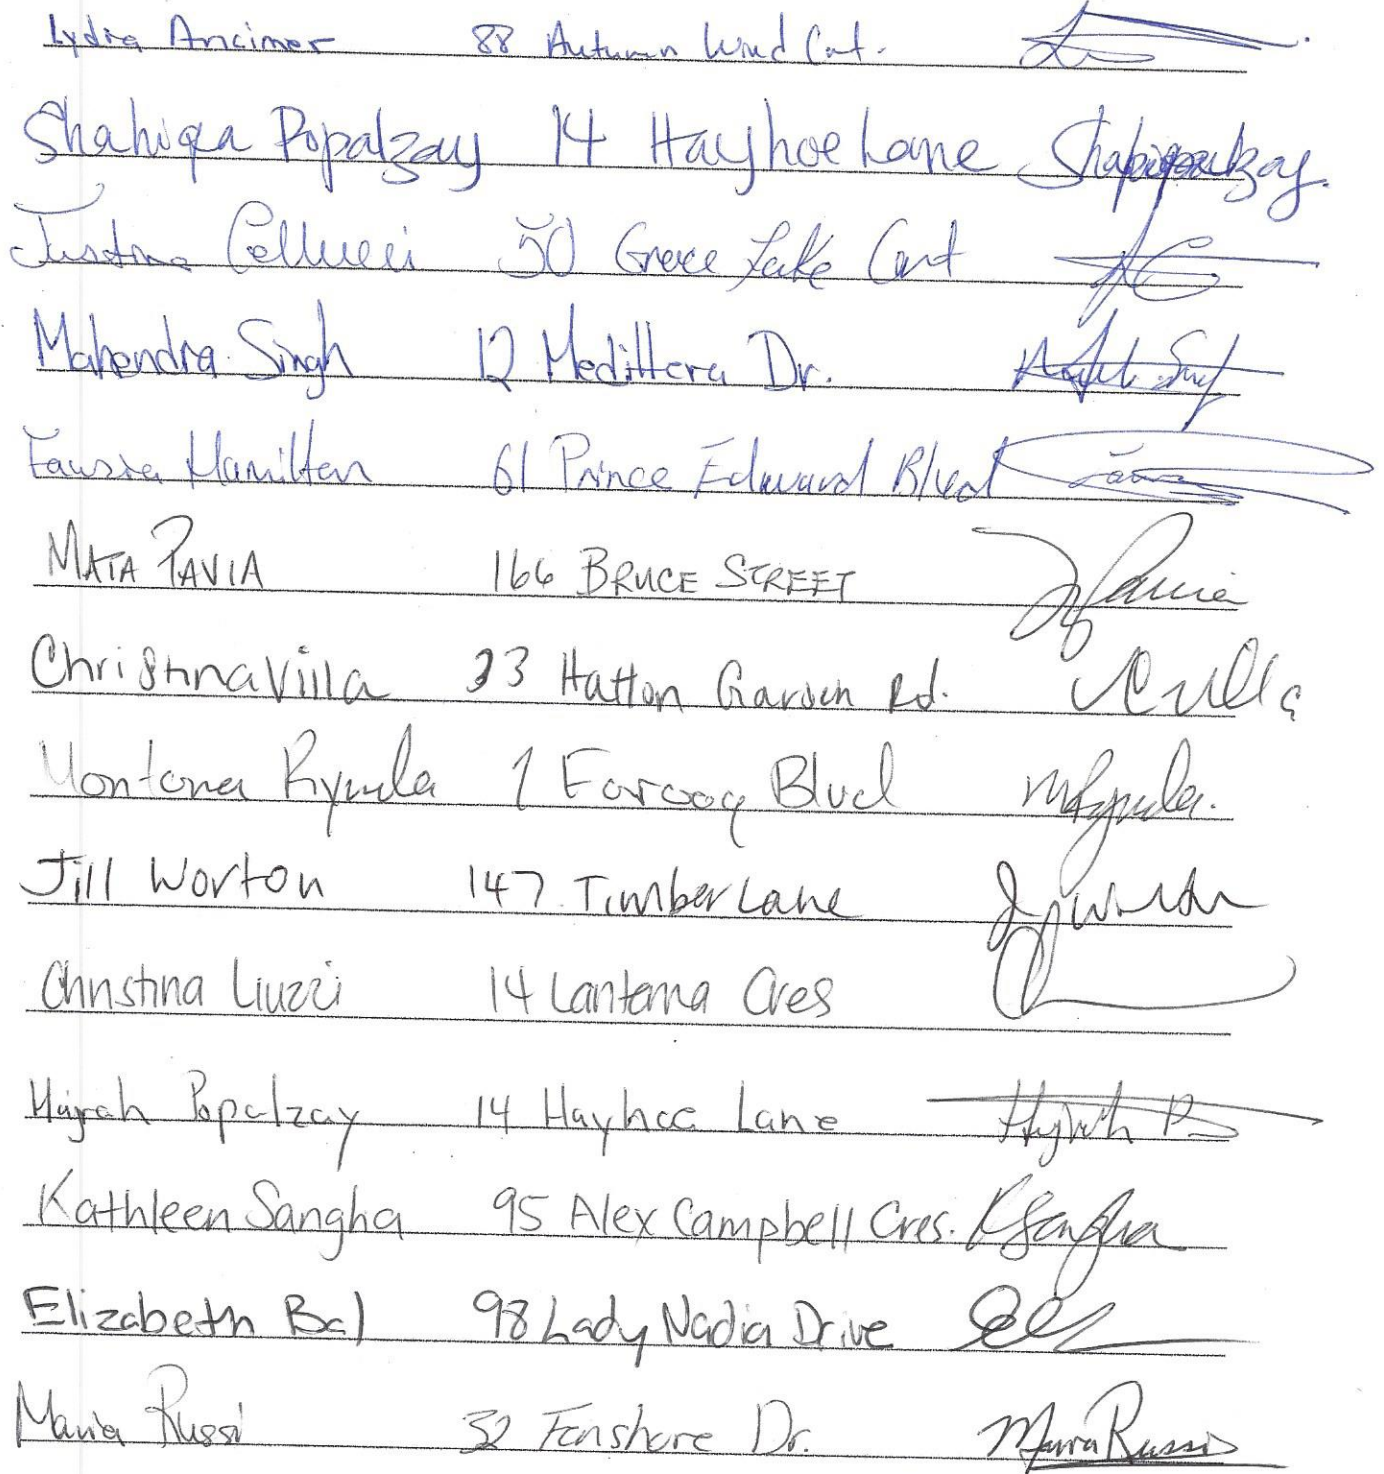 Lydia Ancimer 88 Autumn Wind Crt.
Shahiqa Popalzay 14 Hayhoe Lane
Justine Cellucci 50 Grece Lake Cout
Mahendra Singh 12 Medittera Dr.
Fauzia Hamilton 61 Prince Edward Blvd
MATA PAVIA 166 BRUCE STREET Pavia
Christina Villa 33 Hatton Garden Rd. CVilla
Montana Rynda 1 Farooq Blvd MRynda.
Jill Worton 147 Timber Lane
Christina Liuzzi 14 Lanterna Cres
Hajrah Popalzay 14 Hayhoe Lane
Kathleen Sangha 95 Alex Campbell Cres. KSangha
Elizabeth Bal 98 Lady Nadia Drive
Maria Russi 32 Fanshore Dr. Maria Russi